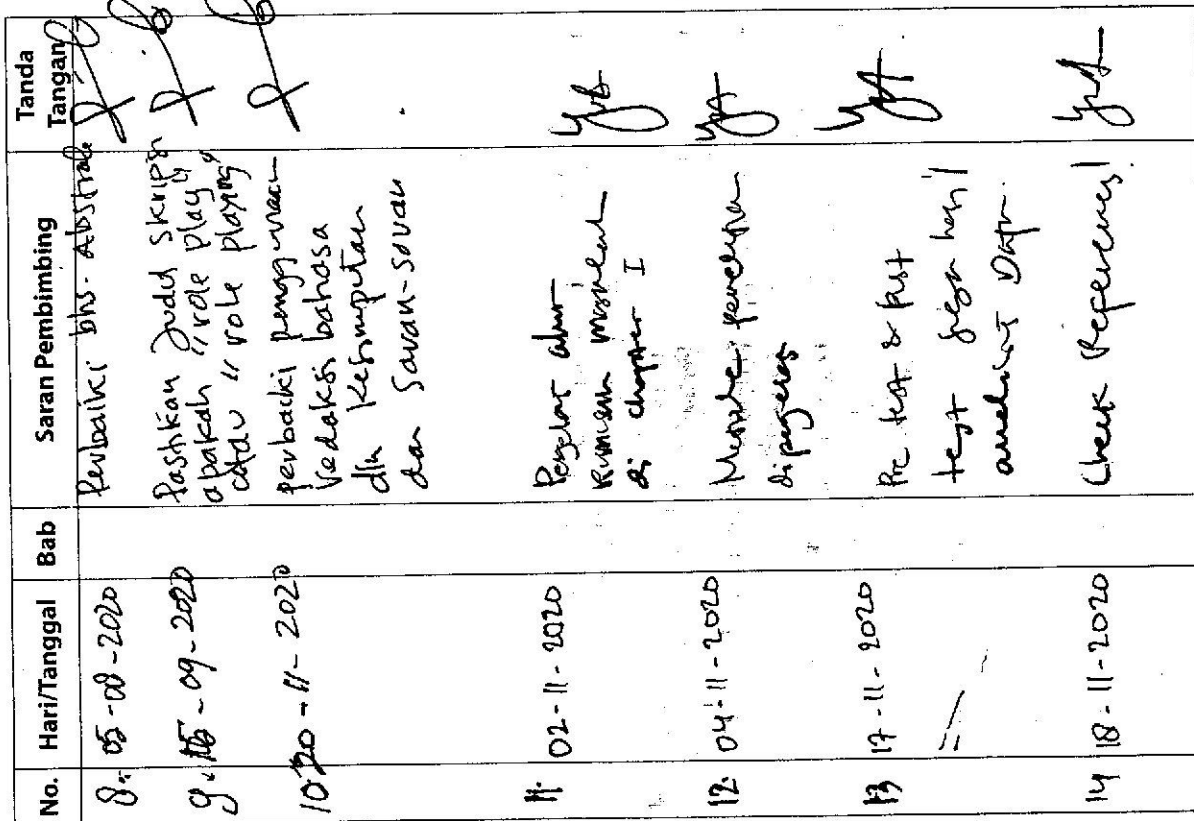 No. Hari/Tanggal Bab Saran Pembimbing Tanda Tangan
8. 05-08-2020 Perbaiki bhs. Abstrak
9. 15-09-2020 Pastikan Judul skripsi
apakah "role play"
atau "role playing"
10. 20-11-2020 perbaiki penggunaan
redaksi bahasa
dlm kesimpulan
dan saran-saran
11. 02-11-2020
rumusan masalah
di chapter I
12. 04-11-2020 Metode penelitian
dipengeras
13 17-11-2020 Pre test & post
test hasil
Data.
14 18-11-2020 Check References!